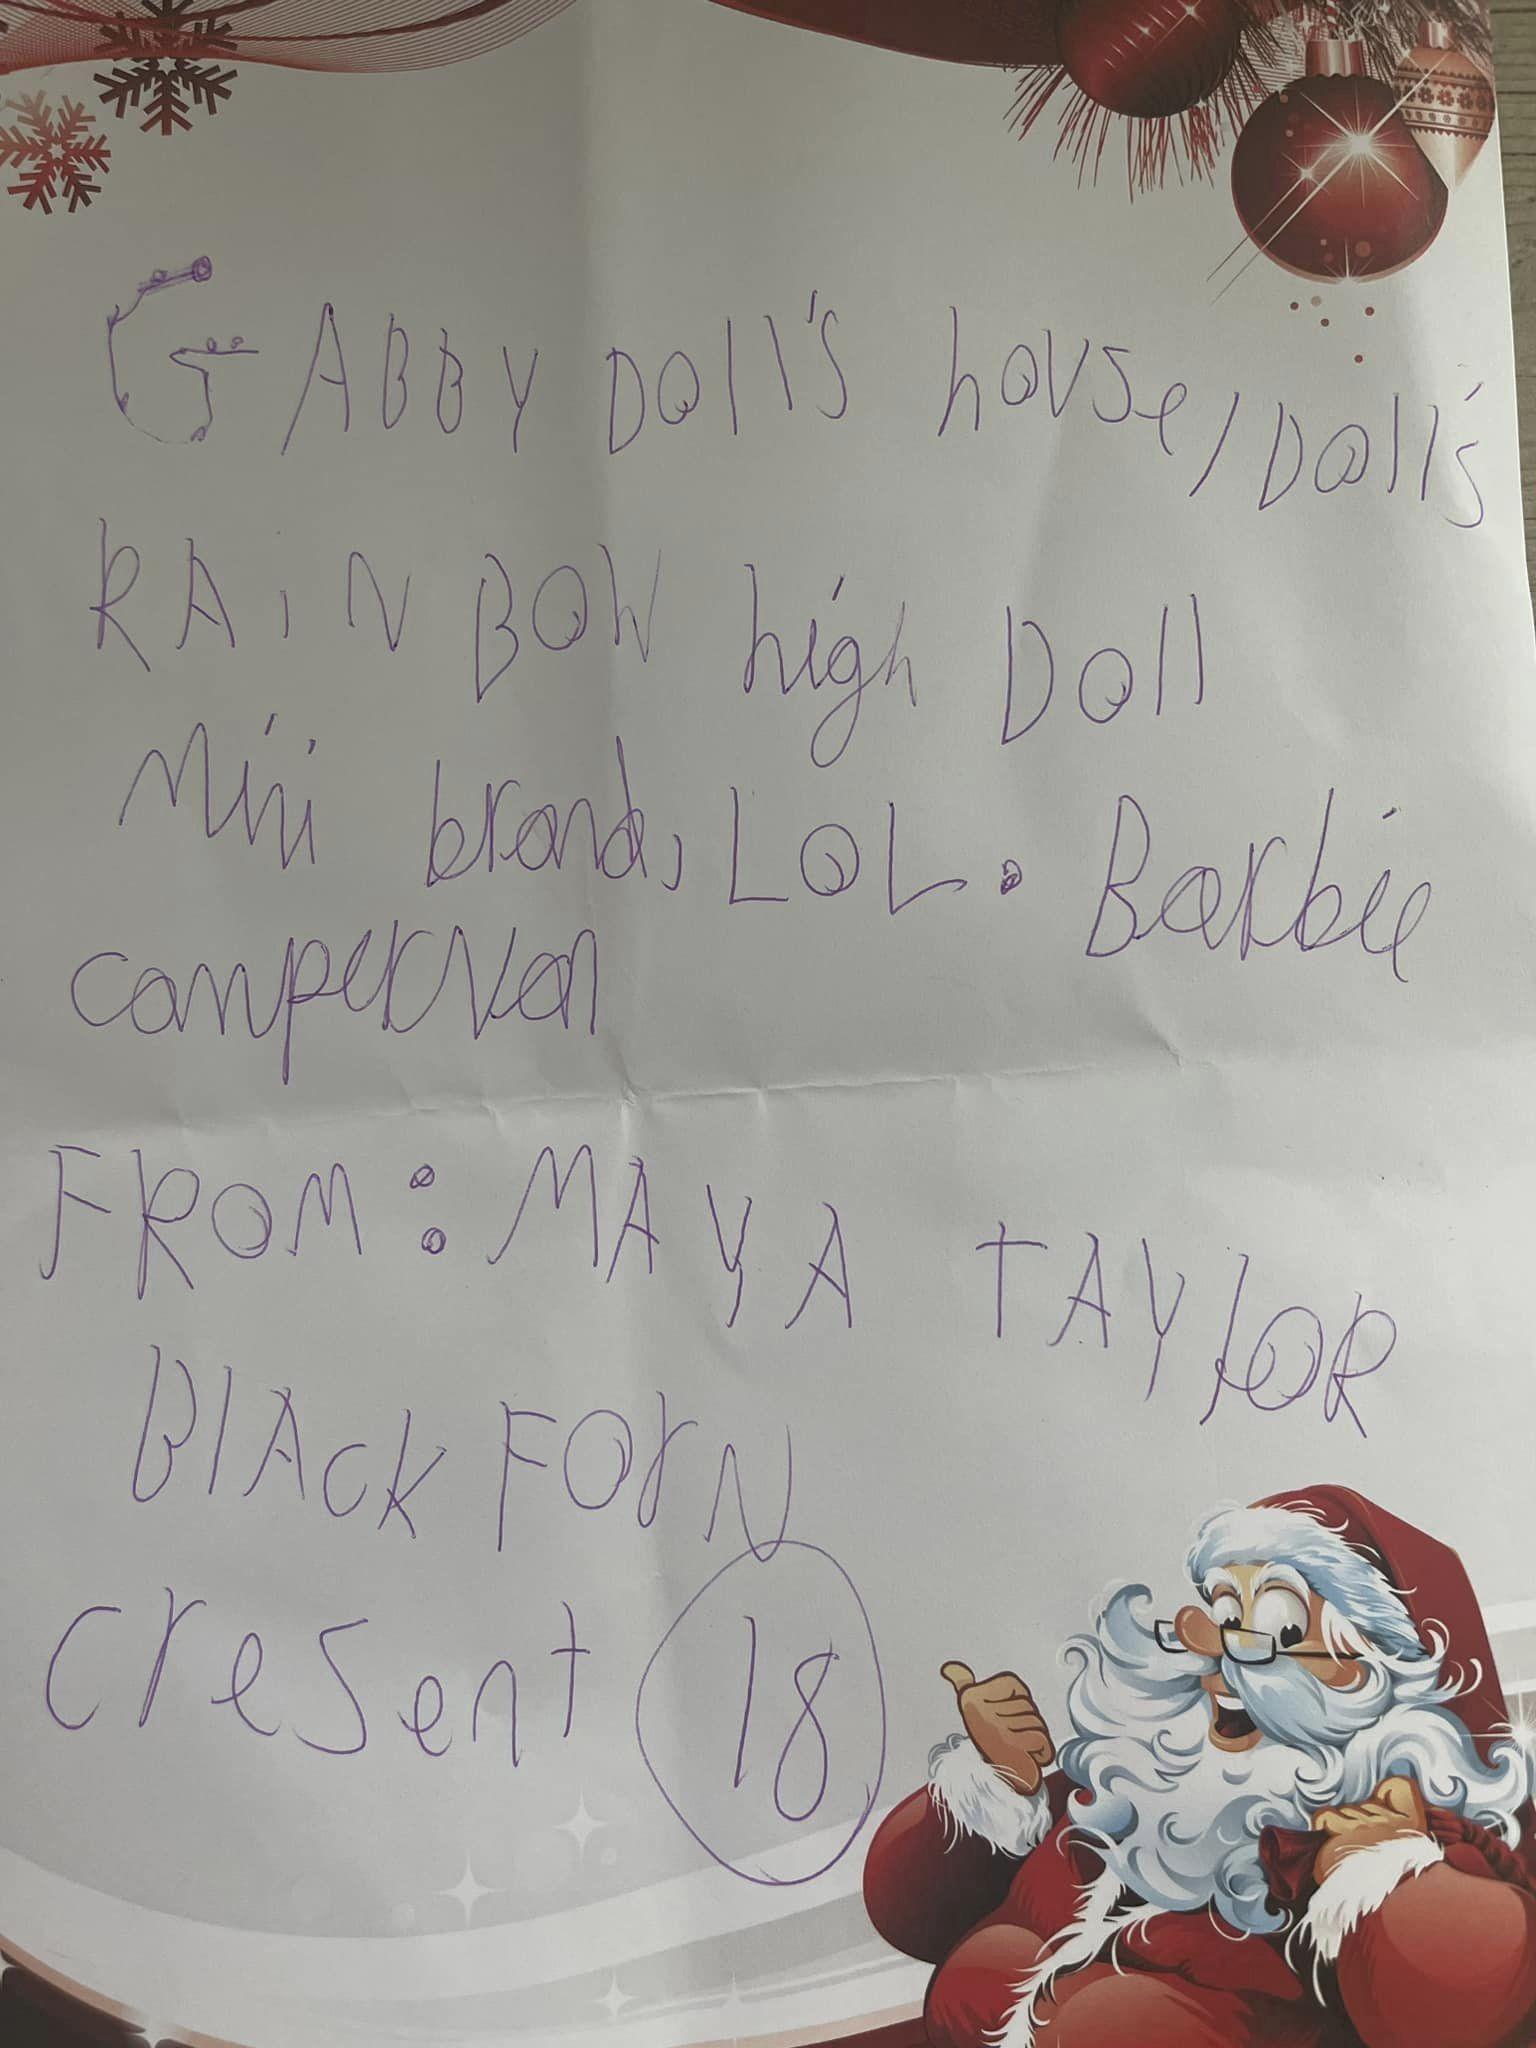 GABBY DOll's house/Doll's
RAiNBOW high Doll
Mini brands, LOL. Barbie
camper van
FROM: MAYA TAYlOR
BlAck FOrN
cresent 18